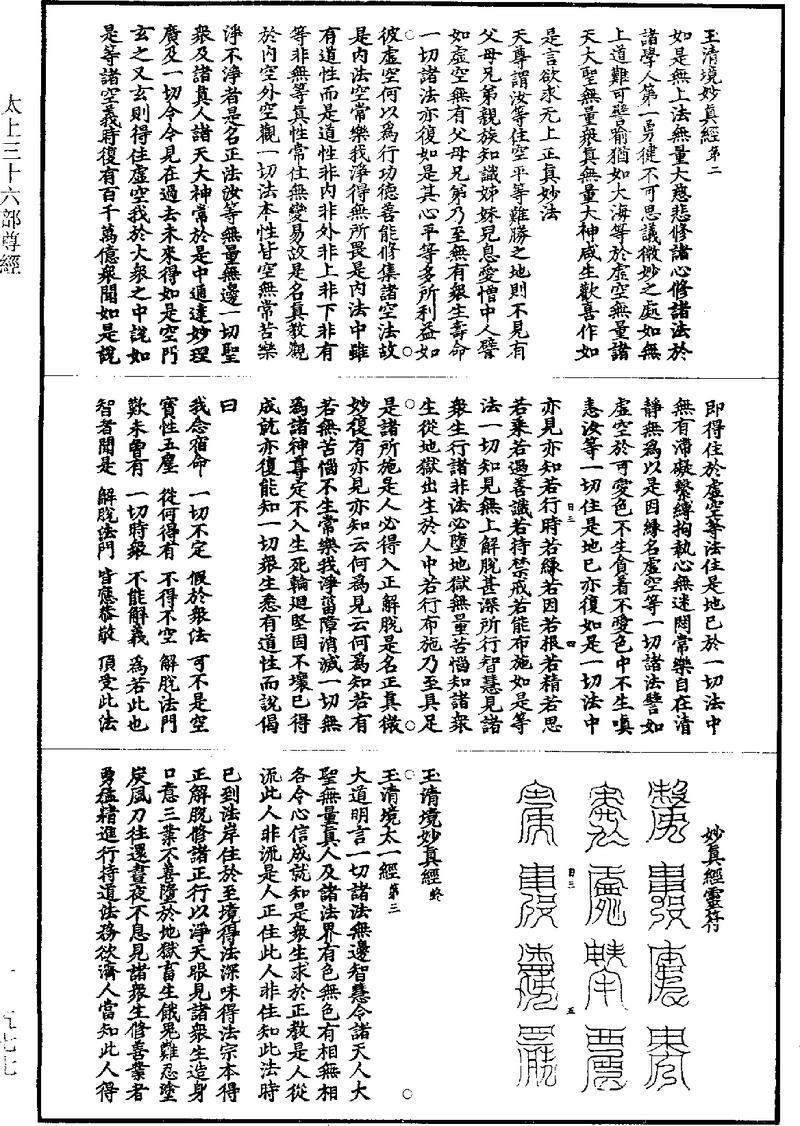 太上三十六部尊經
玉清境妙真經第二
如是無上法無量大慈悲修諸心修諸法於
諸學人第一勇健不可思議微妙之處如無
上道難可譬喻猶如大海等於虛空無量諸
天大聖無量衆真無量大神咸生歡喜作如
是言欲求无上正真妙法
天尊謂汝等住空平等難勝之地則不見有
父母兄弟親族知識姊妹兒息愛憎中人譬
如虛空無有父母兄弟乃至無有衆生壽命
一切諸法亦復如是其心平等多所利益如
彼虛空何以爲行功德善能修集諸空法故
是内法空常樂我淨得無所畏是内法中雖
有道性而是道性非内非外非上非下非有
等非無等真性常住無變易故是名真教觀
於内空外空觀一切法本性皆空無常苦樂
淨不淨者是名正法汝等無量無邊一切聖
衆及諸真人諸天大神常於是中通達妙理
廣及一切令今見在過去未來得如是空門
玄之又玄則得住虛空我於大衆之中說如
是等諸空義時復有百千萬億衆聞如是說
即得住於虛空等法住是地已於一切法中
無有滯礙繫縛拘執心無迷悶常樂自在清
靜無爲以是因緣名虛空等一切諸法譬如
虛空於可愛色不生貪着不愛色中不生嗔
恚汝等一切住是地已亦復如是一切法中
亦見亦知若行時若緣若因若根若精若思
若乘若過善識若持禁戒若能布施如是等
法一切知見無上解脫甚深所行智慧見諸
衆生行諸非法必墮地獄無量苦惱知諸衆
生從地獄出生於人中若行布施乃至具足
是諸所施是人必得入正解脫是名正真微
妙復有亦見亦知云何爲見云何爲知若有
若無苦惱不生常樂我淨菑障消滅一切無
爲諸神尊定不入生死輪迴堅固不壞已得
成就亦復能知一切衆生悉有道性而說偈
曰
我念宿命　一切不定　假於衆法　可不是空
實性五塵　從何得有　不得不空　解脫法門
歎未曾有　一切時衆　不能解義　爲若此也
智者聞是　解脫法門　皆應恭敬　頂受此法
妙真經靈符
玉清境妙真經終
玉清境太一經第三
大道明言一切諸法無邊智慧令諸天人大
聖無量真人及諸法界有色無色有相無相
各令心信成就知是衆生求於正教是人從
流此人非流是人正住此人非住知此法時
已到法岸住於至境得法深味得法宗本得
正解脫修諸正行以淨天眼見諸衆生造身
口意三業不善墮於地獄畜生餓鬼難忍塗
炭風刀往還晝夜不息見諸衆生修善業者
勇猛精進行持道法務欲濟人當知此人得
日三
四
日三
五
一
五七七